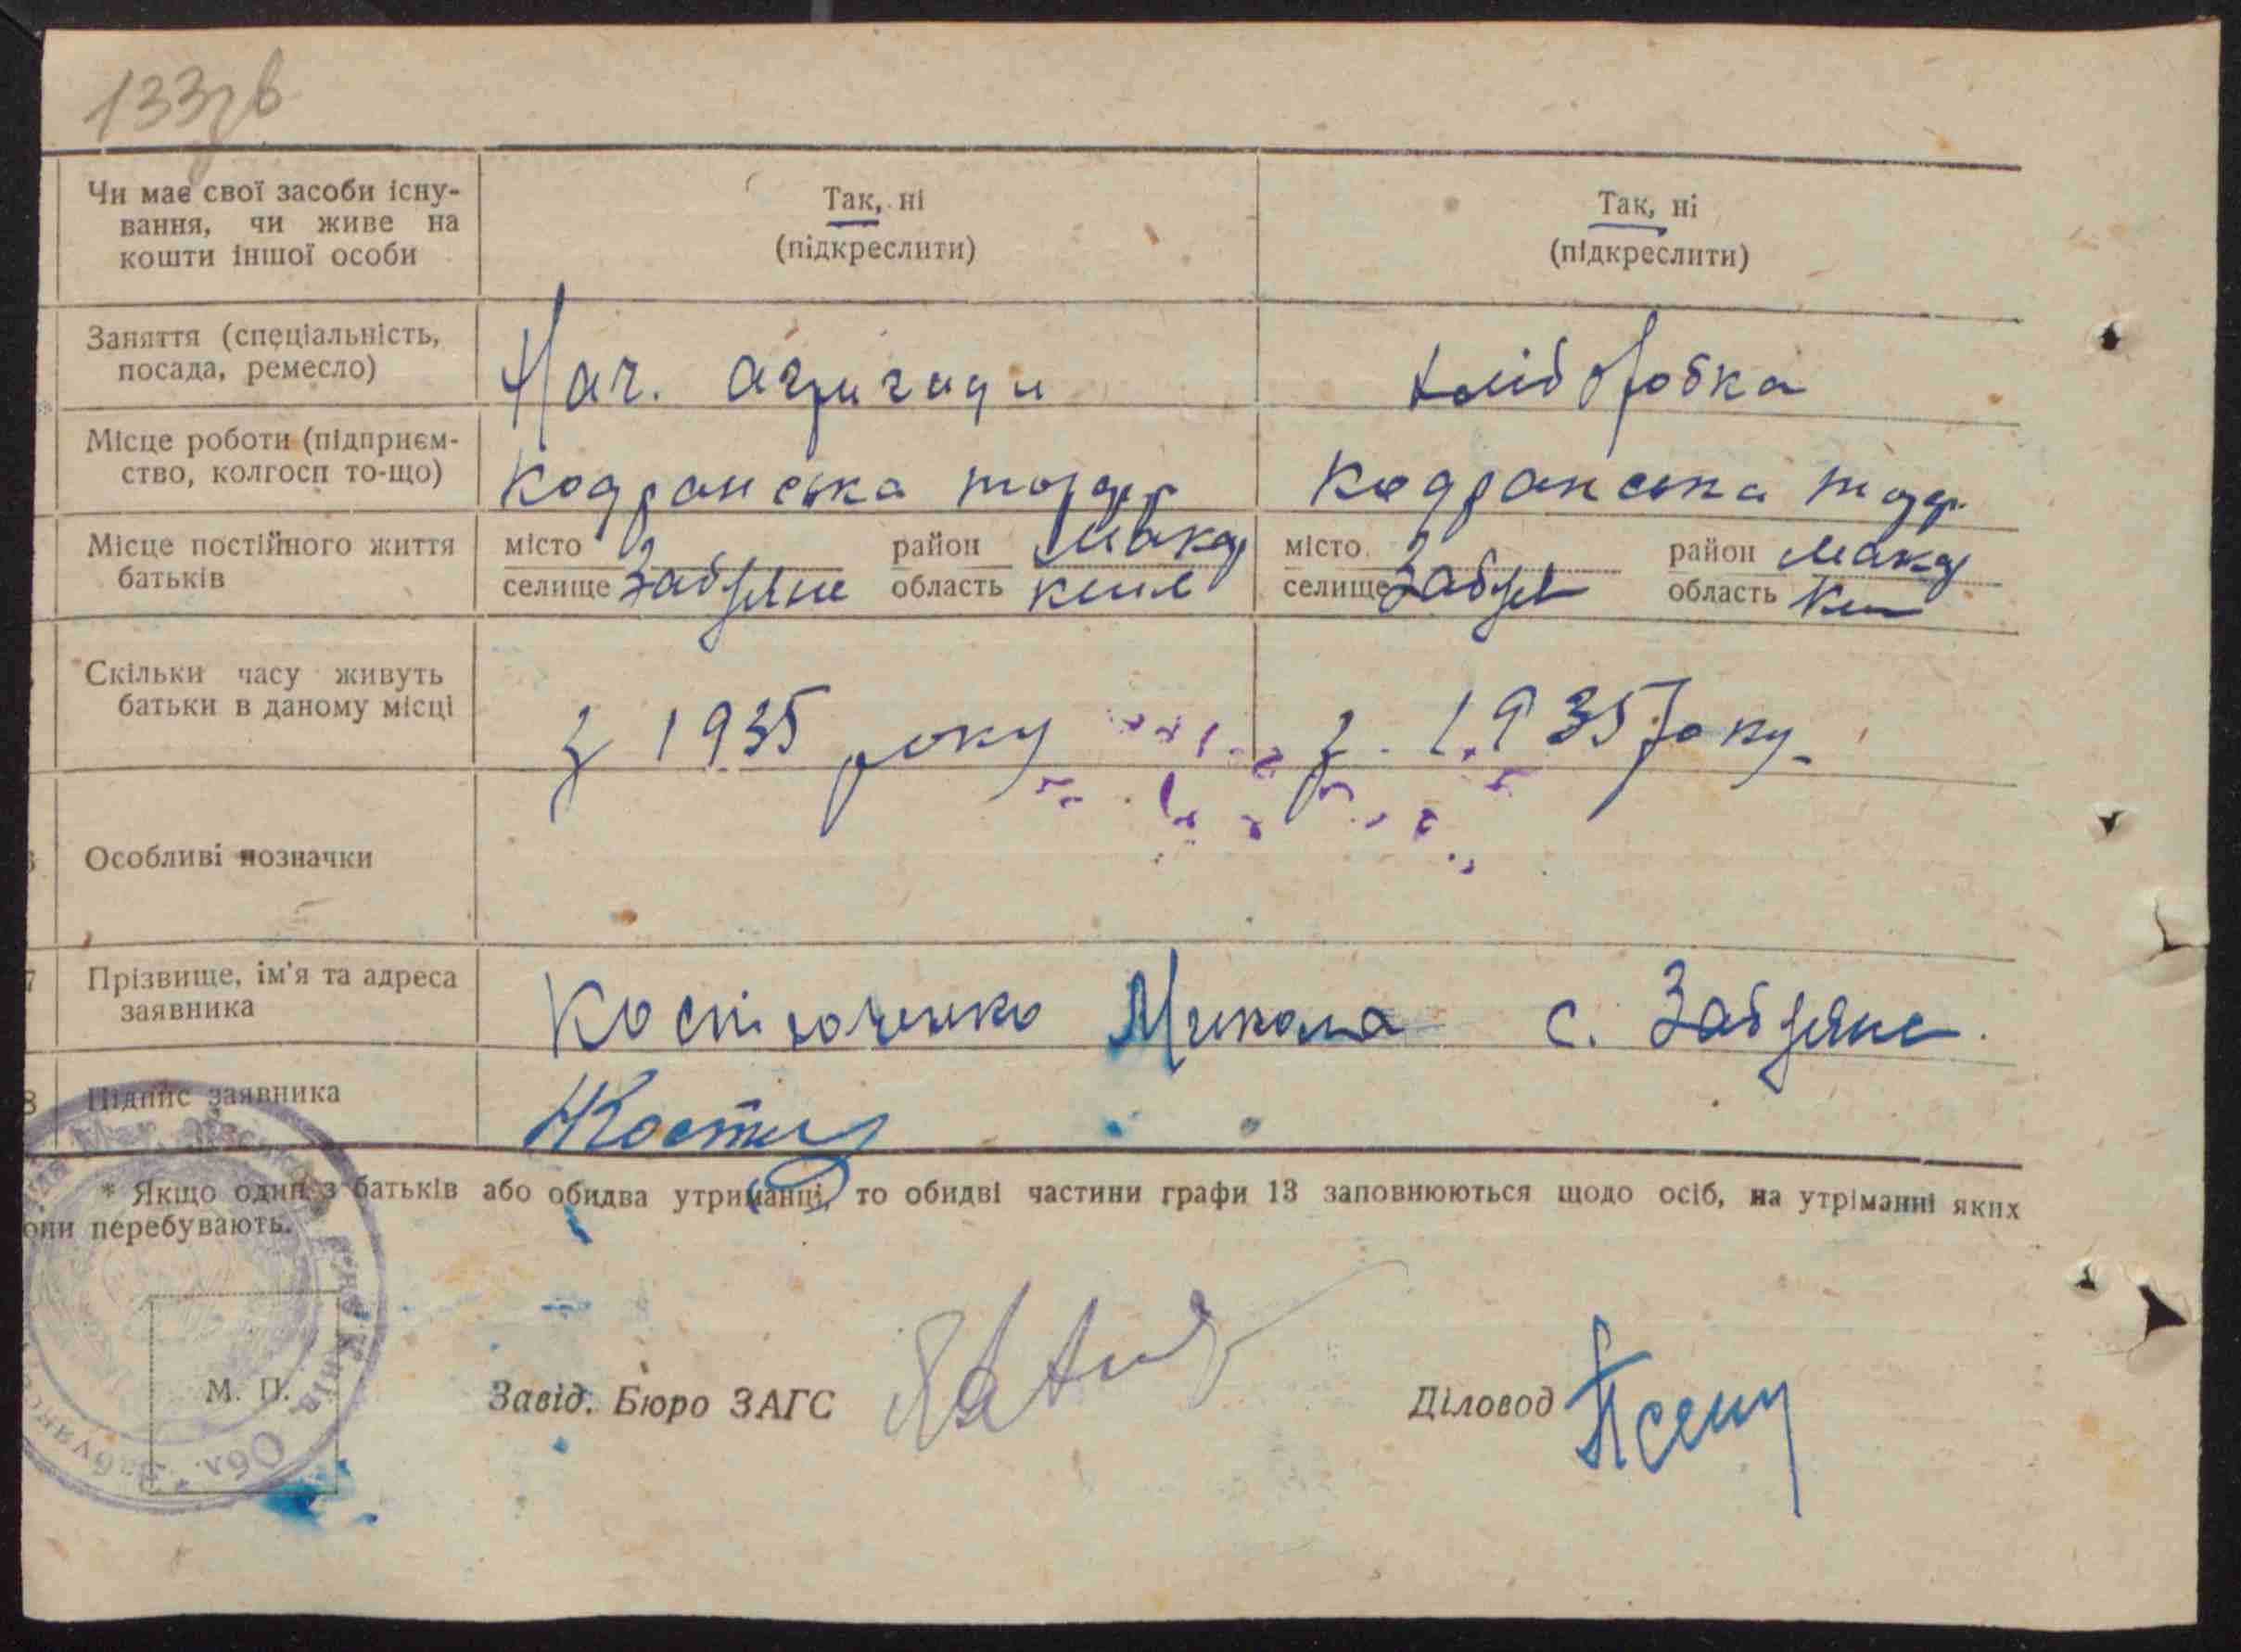 133зв
Чи має свої засоби існу-
вання, чи живе на
кошти іншої особи
Так, ні
(підкреслити)
Так, ні
(підкреслити)
Заняття (спеціальність,
посада, ремесло)
Нач.
Місце роботи (підприєм-
ство, колгосп то-що)
Кодранська
Кодранська
Місце постійного життя
батьків
місто
район Макар
селище Забуяне область Київ
місто
район Макар
селище Забуян область Ки
Скільки часу живуть
батьки в даному місці
з 1935 року
з 1935 року.
Особливі позначки
7 Прізвище, ім'я та адреса
заявника
Костюченко Микола с. Забуяне.
8 Підпис заявника
* Якщо один з батьків або обидва утриманці, то обидві частини графи 13 заповнюються щодо осіб, на утріманні яких
они перебувають.
М. П.
Завід. Бюро ЗАГС
Діловод
Київ
Обл.